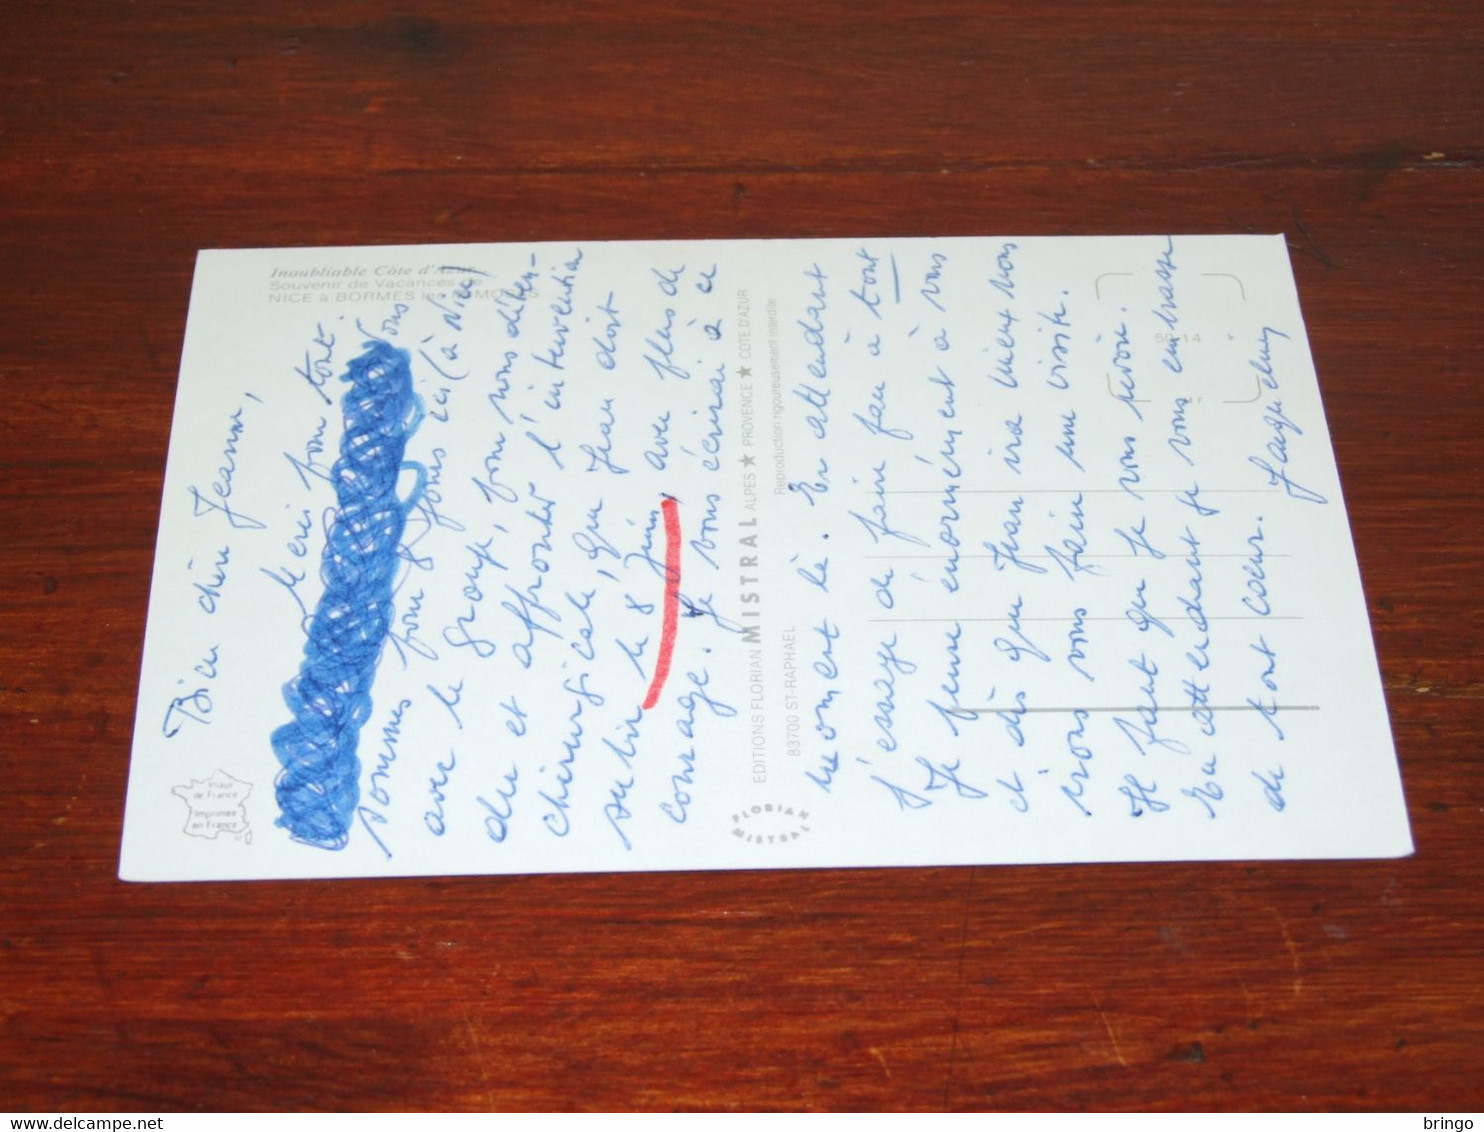 Inoubliable Côte d'Azur
Souvenir de Vacances de
NICE à BORMES les MIMOSAS
Bien chère Jeanne,
Merci pour tout.
Nous
sommes pour 8 jours ici (à Nice)
avec le groupe, pour nous déten-
dre et affronter l'intervention
chirurgicale, que Jean doit
subir le 8 Juin avec plus de
courage. Je vous écrirai à ce
moment là. En attendant
J'essaye de faire face à tout
Je pense énormément à vous
et dès que Jean ira mieux nous
irons vous faire une visite.
Il faut que je vous revoie.
En attendant je vous embrasse
de tout coeur. Jacqueline
EDITIONS FLORIAN MISTRAL ALPES ★ PROVENCE ★ COTE D'AZUR
83700 ST-RAPHAEL
Reproduction rigoureusement interdite
FLORIAN
MISTRAL
de France
Imprimée
en France
delcampe.net
bringo